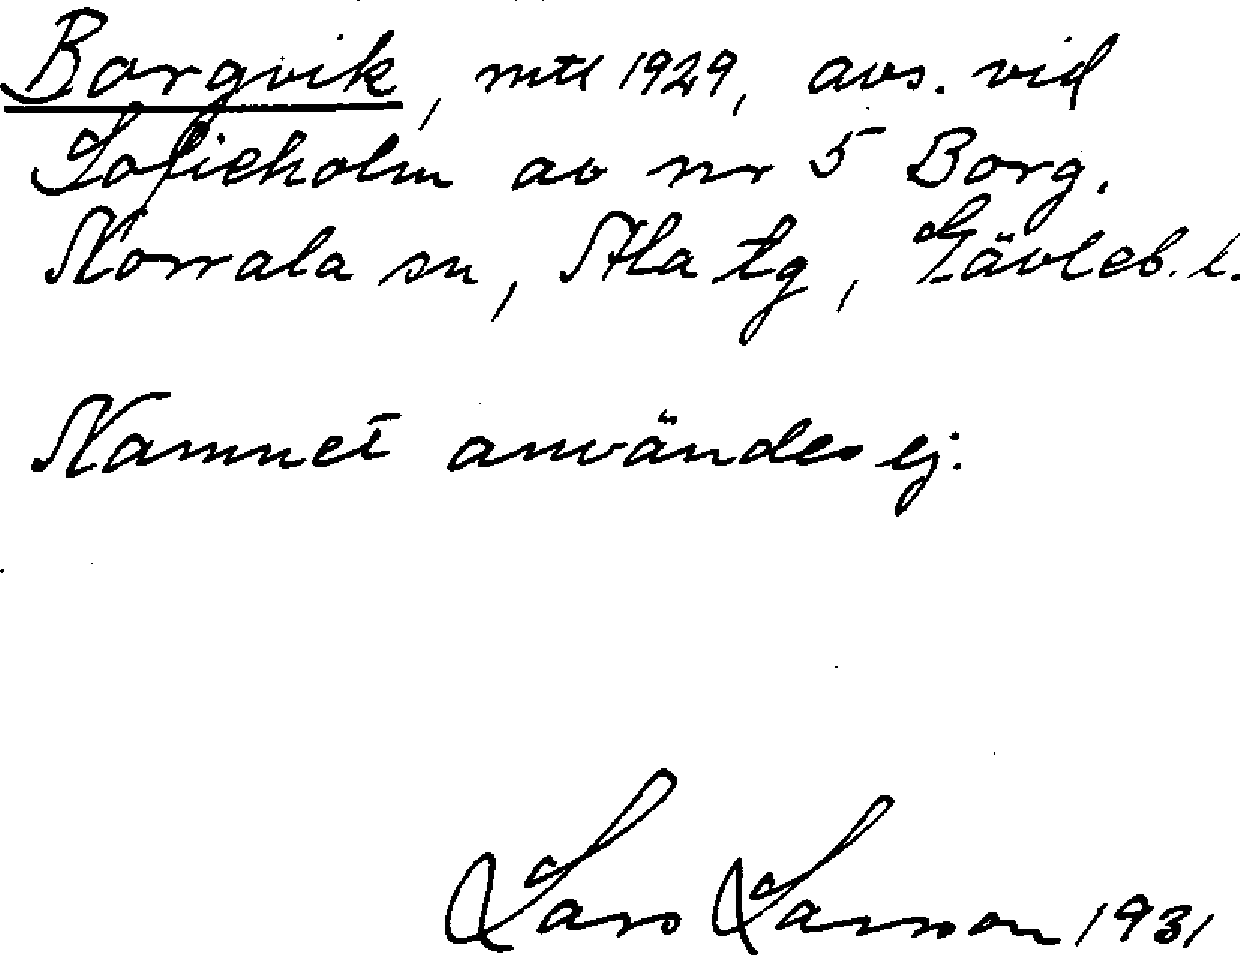 Borgvik, mtl 1929, avs. vid
Sofieholm av nr 5 Borg.
Norrala sn, Ala tg, Gävleb. l.
Namnet användes ej.
Lars Larsson 1931